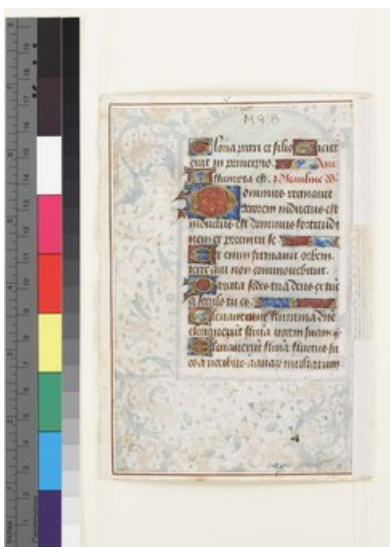 M 9 8
Gloria patri et filio Sicut
erat in principio. Ane
Assumpta est. psalmus D.
Dominus regnauit
decorem indutus est
indutus est dominus fortitudi
nem et precinxit se
Et enim firmauit orbem
terre qui non commouebitur
Parata sedes tua deus ex tūc
a seculo tu es
Eleuauerunt flumina dñe
eleuauerūt flumīa uocem suam
Eleuauerūt flumīa fluctus su
os a uocibus aquarum multarum